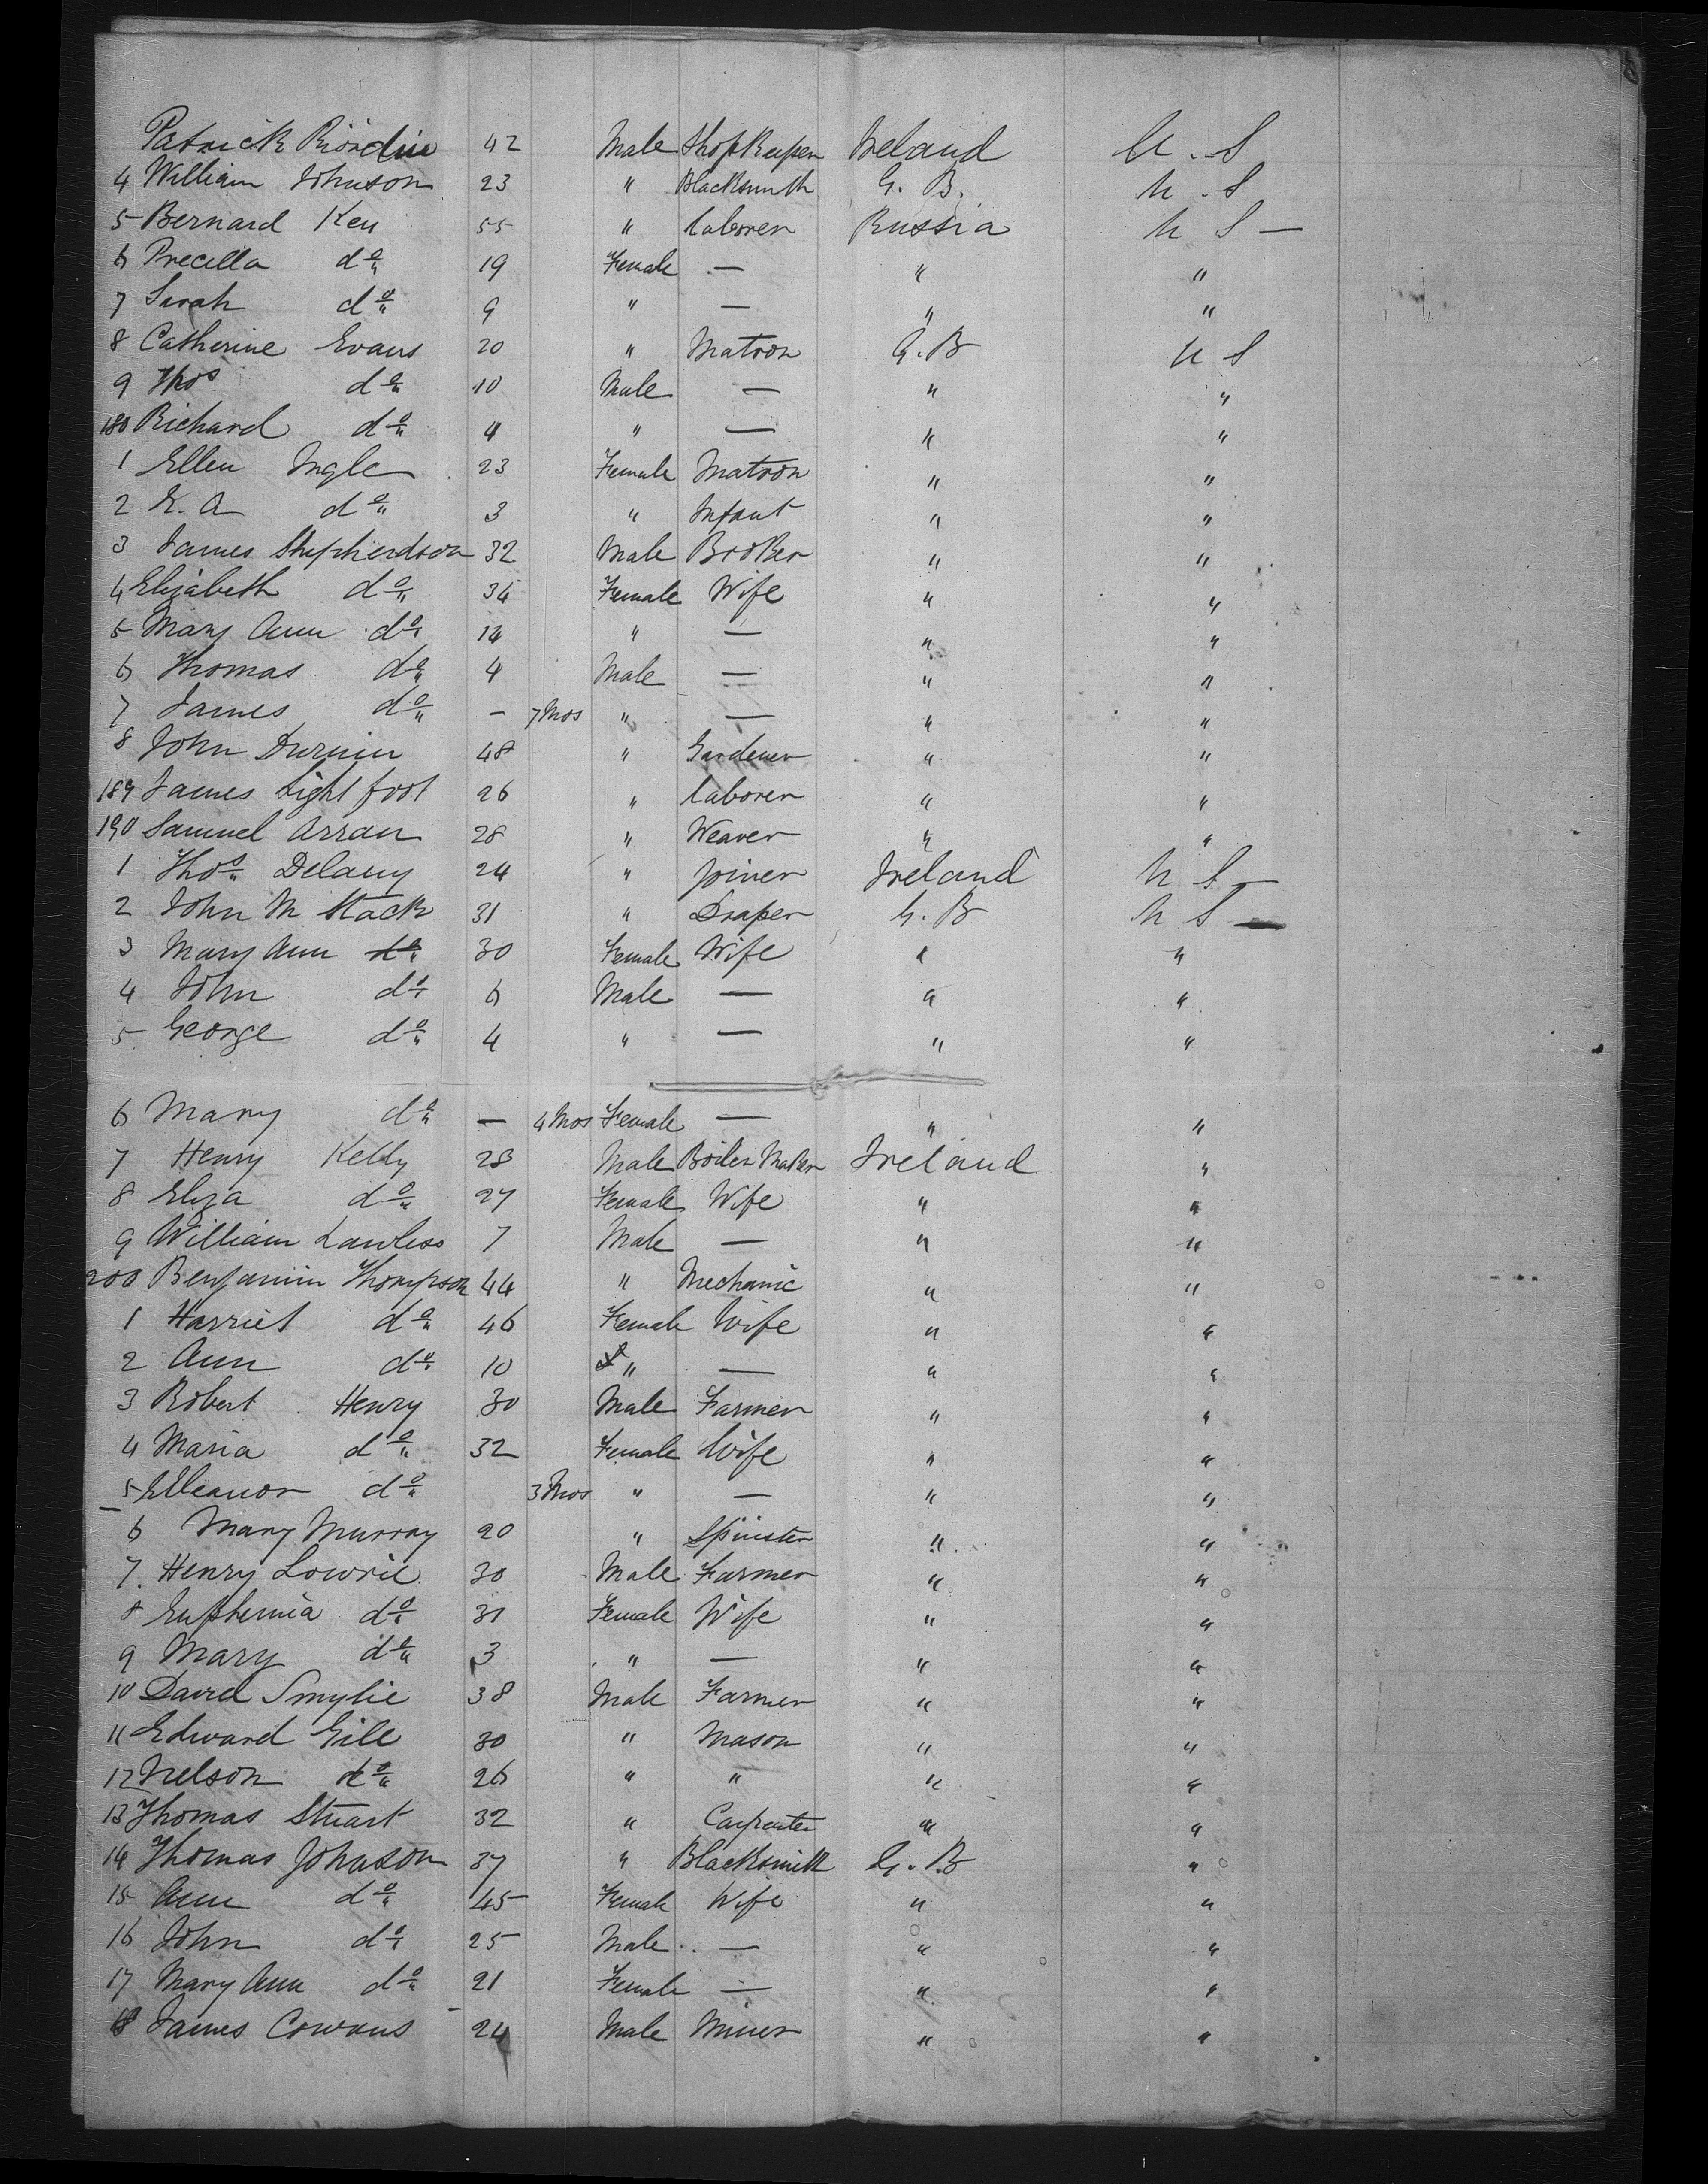 Patrick Riordin 42 Male Shopkeeper Ireland U.S
4 William Johnson 23 " Blacksmith G.B. U.S
5 Bernard Key 55 " laborer Russia U S —
6 Precella do 19 Female — " "
7 Sarah do 9 " — " "
8 Catherine Evans 20 " Matron G.B U S
9 Thos do 10 Male — " "
180 Richard do 4 " — " "
1 Ellen Ingle 23 Female Matron " "
2 E. A do 3 " Infant " "
3 James Shepherdson 32 Male Broker " "
4 Elizabeth do 34 Female Wife " "
5 Mary Ann do 14 " — " "
6 Thomas do 4 Male — " "
7 James do — 7 Mos " — " "
8 John Durnin 48 " Gardener " "
189 James Lightfoot 26 " laborer " "
190 Samuel Arran 28 " Weaver " "
1 Thos Delany 24 " Joiner Ireland U S —
2 John M Stack 31 " Draper G.B U S —
3 Mary Ann do 30 Female Wife " "
4 John do 6 Male — " "
5 George do 4 " — " "
6 Mary do — 4 Mos Female — " "
7 Henry Kelly 28 Male Boiler Maker Ireland "
8 Eliza do 27 Female Wife " "
9 William Lawless 7 Male — " "
200 Benjamin Thompson 44 " Mechanic " "
1 Harriet do 46 Female Wife " "
2 Ann do 10 " — " "
3 Robert Henry 30 Male Farmer " "
4 Maria do 32 Female Wife " "
5 Elleanor do 3 Mos " — " "
6 Mary Murray 20 " Spinster " "
7 Henry Lowrie 30 Male Farmer " "
8 Euphemia do 31 Female Wife " "
9 Mary do 3 " — " "
10 David Smylie 38 Male Farmer " "
11 Edward Gill 30 " Mason " "
12 Nelson do 26 " " " "
13 Thomas Stuart 32 " Carpenter " "
14 Thomas Johnson 37 " Blacksmith G.B "
15 Ann do 45 Female Wife " "
16 John do 25 Male — " "
17 Mary Ann do 21 Female — " "
18 James Cowans 24 Male Miner " "